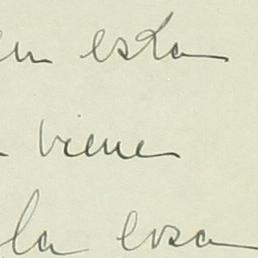 en esta
viene
la cosa